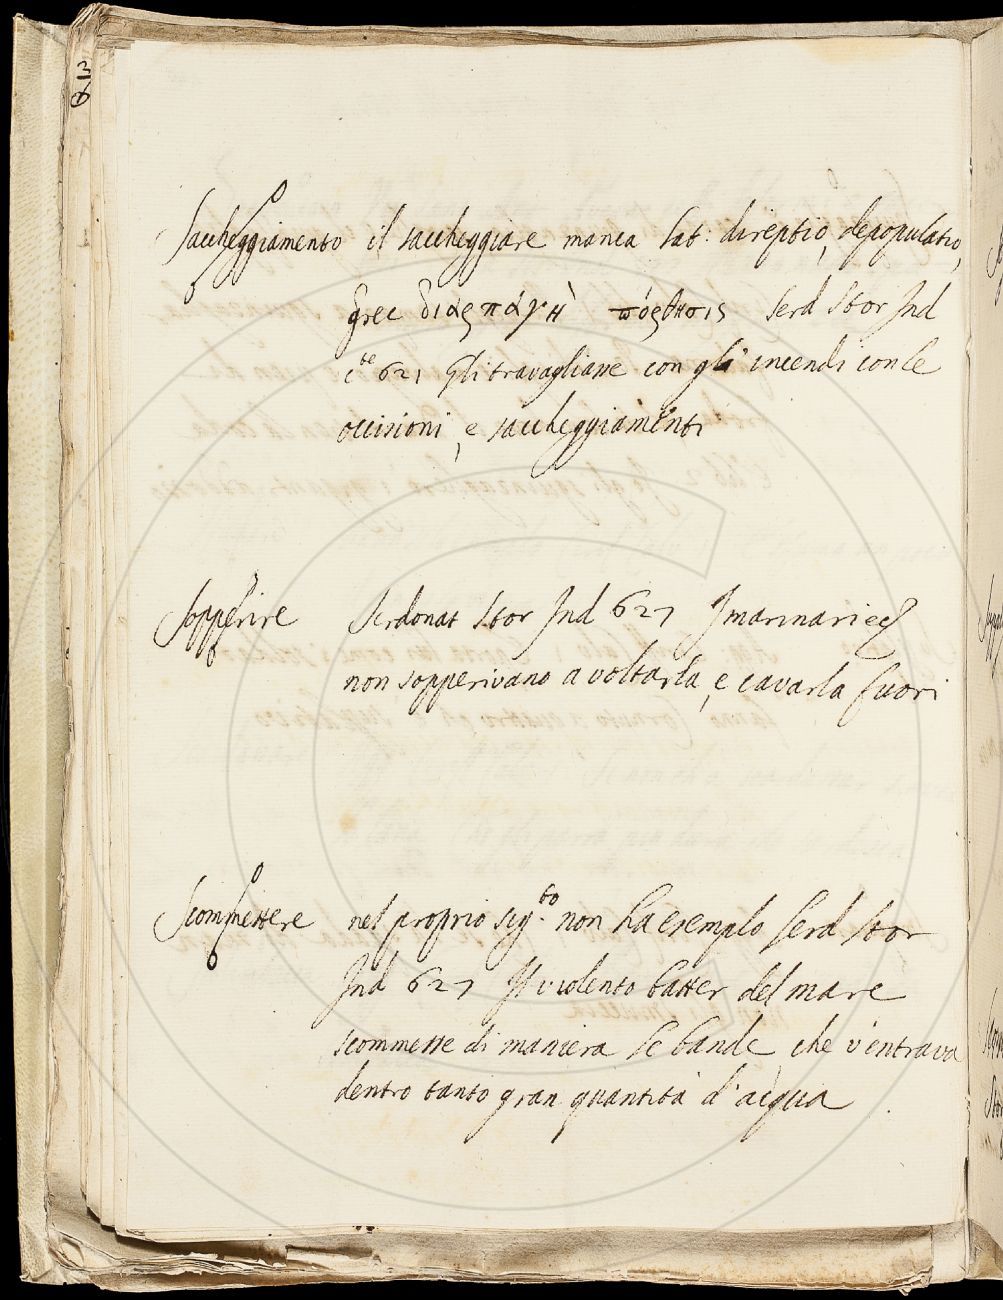 Saccheggiamento il saccheggiare manca Lat: direptio, depopulatio,
grec διαρπάγὴ πόρθησις Serd Stor Ind
c.te 621 Gli travagliasse con gli incendi con le
occisioni, e saccheggiamenti
Sopperire Serdonat Stor Ind 627 I marinari
non sopperivano a voltarla, e cavarla fuori
Scommettere nel proprio sig.to non ha esemplo Serd Stor
Ind 627 Il violento batter del mare
scommesse di maniera le bande che v'entrava
dentro tanto gran quantità d'acqua